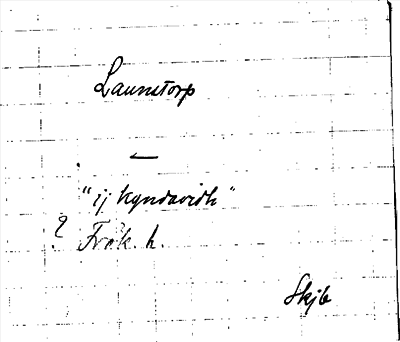 Launstorp
—
"ij kyndavidh"
? Frök. h.
Skjb